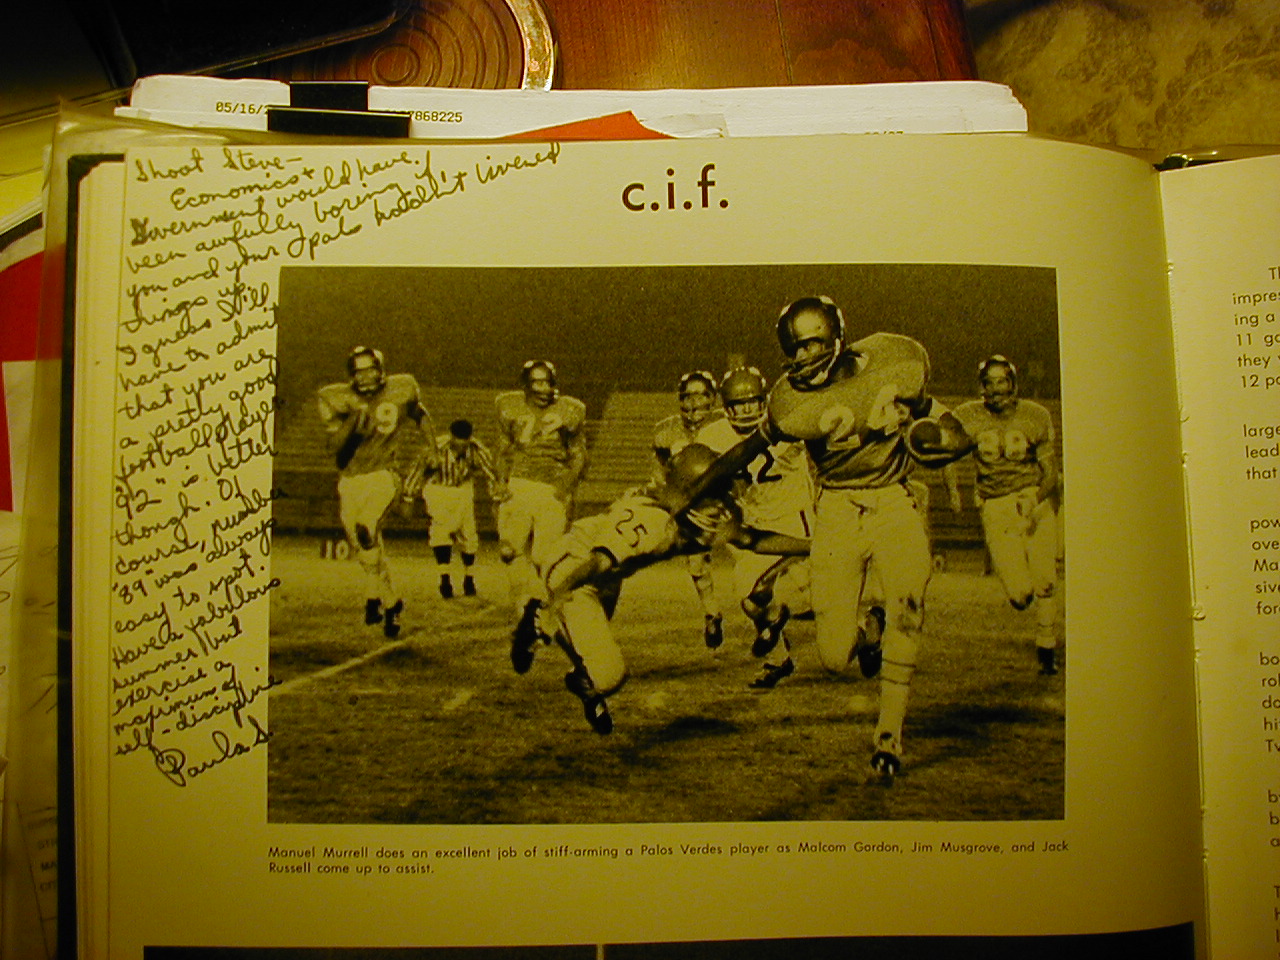 05/16/
7868225
c.i.f.
Shoot Steve-
Economics +
Government would have
been awfully boring if
you and your pals hadn't livened
things up.
I guess I'll
have to admit
that you are
a pretty good
football player
"92" is better
though. Of
course, number
"89" was always
easy to spot.
Have a fabulous
summer, but
exercise a
maximum of
self-discipline
Paula S.
79
72
24
88
2
25
10
Manuel Murrell does an excellent job of stiff-arming a Palos Verdes player as Malcom Gordon, Jim Musgrove, and Jack
Russell come up to assist.
Th
impres
ing a
11 go
they
12 po
large
lead
that
pow
ove
Ma
sive
for
bo
rol
do
hi
Tv
b
b
a
T